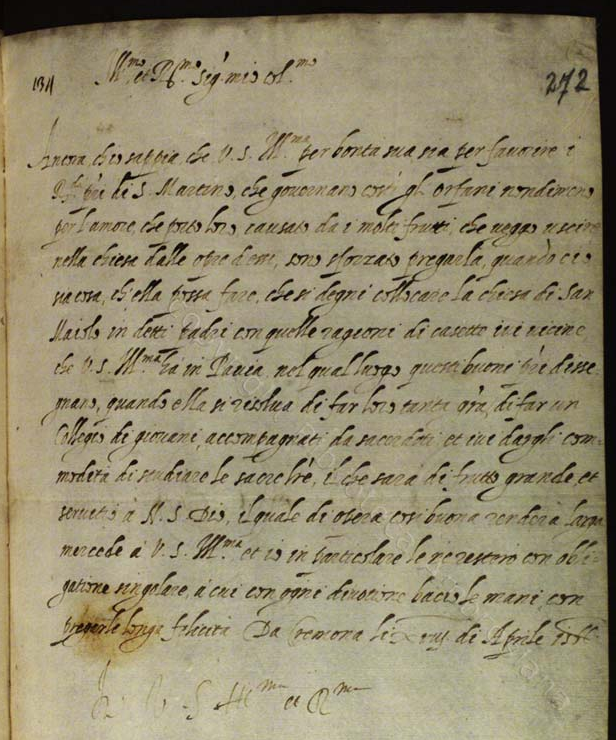 134
272
Ill.mo et R.mo sig.r mio col.mo
Ancora ch'io sappia che V. S. Ill.ma per bontà sua sia per favorire i
R.di p̃ri di S. Martino, che governano costì gl'orfani nondimeno
per l'amore, che porto loro causato da i molti frutti, che veggo uscire
nella chiesa dalle opre d'essi, sono sforzato pregarla, quando ciò
sia cosa, ch'ella possa fare, che si degni collocare la chiesa di San
Maiolo in detti padri con quelle ragioni di casette ivi vicine,
che V. S. Ill.ma ha in Pavia, nel qual luogo questi buoni p̃ri disse-
gnano, quando ella si risolva di far loro tanta gr̃a, di far un
Collegio di giovani, accompagnati da sacerdoti, et ivi dargli com-
modità di studiare le sacre lr̃e, il che sarà di frutto grande, et
servitio à N. S. Dio, il quale di opera così buona renderà larga
mercede à V. S. Ill.ma et io in particolare le ne resterò con obli-
gatione singolare, à cui con ogni divotione bacio le mani, con
pregarle longa felicità. Da Cremona li di Aprile
Di V. S. Ill.ma et R.ma